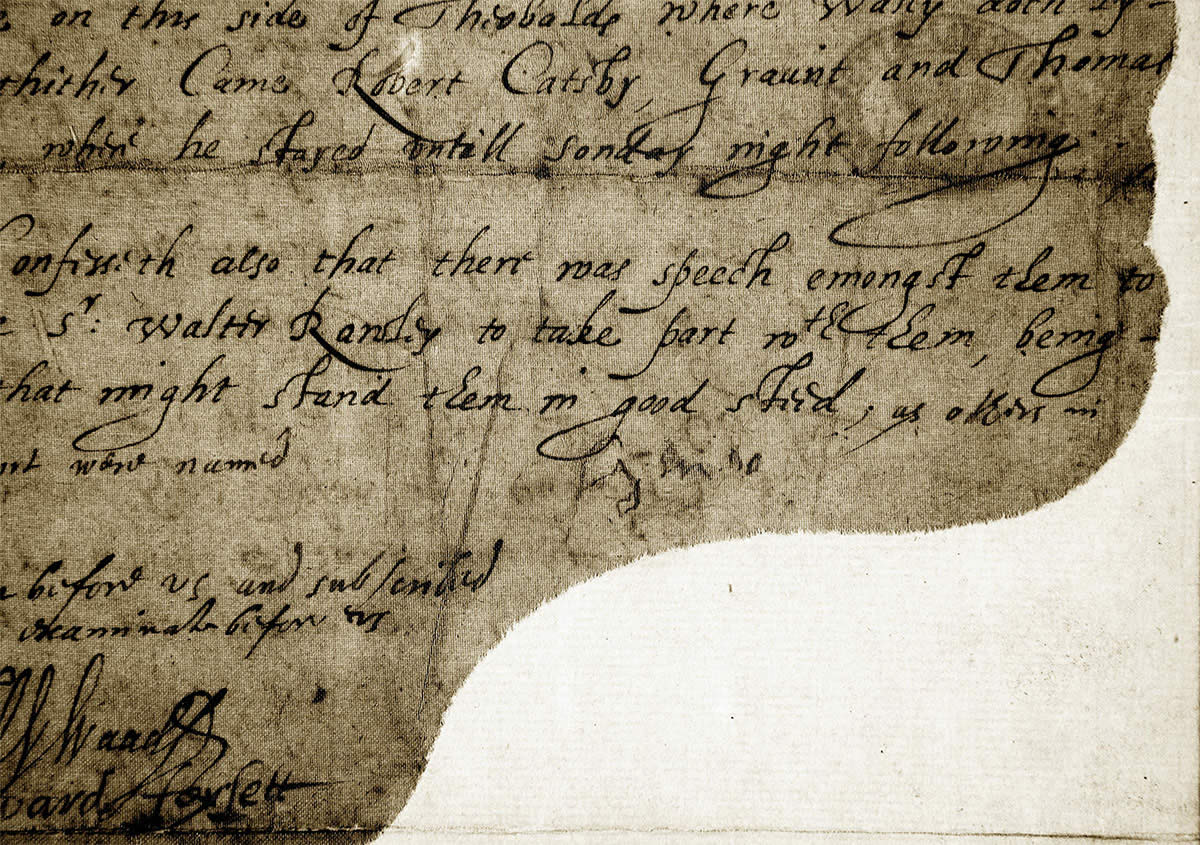 on this side of Theobalds where Wally doth ly-
thither Came Robert Catsby, Graunt and Thomas
, where he stayed untill sonday night following
onfesseth also that there was speech emongst them to
Sr: Walter Rawley to take part wth them, being -
that might stand them in good steed, as others in
were named
before us and subscribed
examinate before us
W Waad
ward forsett